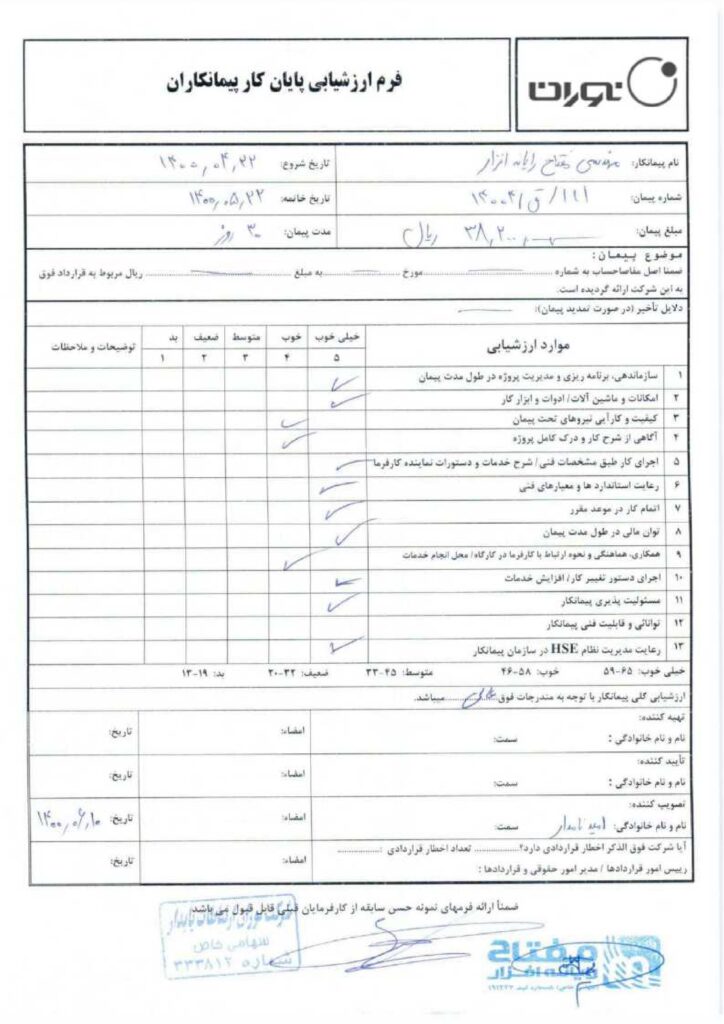 توران
فرم ارزشیابی پایان کار پیمانکاران
نام پیمانکار: مهندسی مفتاح رایانه افزار
تاریخ شروع: ۱۴۰۰,۰۴,۲۲
شماره پیمان: ۱۱۱/ق/۱۴۰۰۴
تاریخ خاتمه: ۱۴۰۰,۰۵,۲۲
مبلغ پیمان: ریال
مدت پیمان: ۳۰ روز
موضوع پیمان:
ضمنا اصل مفاصاحساب به شماره .......... مورخ .......... به مبلغ .......... ریال مربوط به قرارداد فوق
به این شرکت ارائه گردیده است.
دلایل تأخیر (در صورت تمدید پیمان):
موارد ارزشیابی خیلی خوب ۵ خوب ۴ متوسط ۳ ضعیف ۲ بد ۱ توضیحات و ملاحظات
۱ سازماندهی، برنامه ریزی و مدیریت پروژه در طول مدت پیمان ✓
۲ امکانات و ماشین آلات/ ادوات و ابزار کار ✓
۳ کیفیت و کارآیی نیروهای تحت پیمان ✓
۴ آگاهی از شرح کار و درک کامل پروژه ✓
۵ اجرای کار طبق مشخصات فنی/ شرح خدمات و دستورات نماینده کارفرما ✓
۶ رعایت استاندارد ها و معیارهای فنی ✓
۷ اتمام کار در موعد مقرر ✓
۸ توان مالی در طول مدت پیمان ✓
۹ همکاری، هماهنگی و نحوه ارتباط با کارفرما در کارگاه/ محل انجام خدمات ✓
۱۰ اجرای دستور تغییر کار/ افزایش خدمات ✓
۱۱ مسئولیت پذیری پیمانکار ✓
۱۲ توانائی و قابلیت فنی پیمانکار
۱۳ رعایت مدیریت نظام HSE در سازمان پیمانکار ✓
خیلی خوب: ۶۵-۵۹ خوب: ۵۸-۴۶ متوسط: ۴۵-۳۳ ضعیف: ۳۲-۲۰ بد: ۱۹-۱۳
ارزشیابی کلی پیمانکار با توجه به مندرجات فوق .......... میباشد.
تهیه کننده:
نام و نام خانوادگی : سمت: امضاء: تاریخ:
تأیید کننده:
نام و نام خانوادگی : سمت: امضاء: تاریخ:
تصویب کننده:
نام و نام خانوادگی: امید نامدار سمت: امضاء: تاریخ: ۱۴۰۰,۰۶,۱۰
آیا شرکت فوق الذکر اخطار قراردادی دارد؟.......... تعداد اخطار قراردادی :..........
رییس امور قراردادها / مدیر امور حقوقی و قراردادها : امضاء: تاریخ:
ضمناً ارائه فرمهای نمونه حسن سابقه از کارفرمایان قبلی قابل قبول می باشد
سهامی خاص
شماره ۳۳۳۸۱۲
مفتاح
رایانه افزار